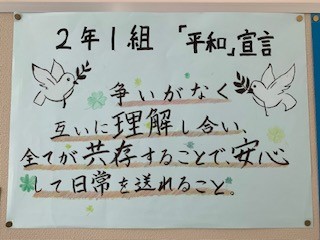 2年1組 「平和」宣言
争いがなく
互いに理解し合い、
全てが共存することで、安心
して日常を送れること。